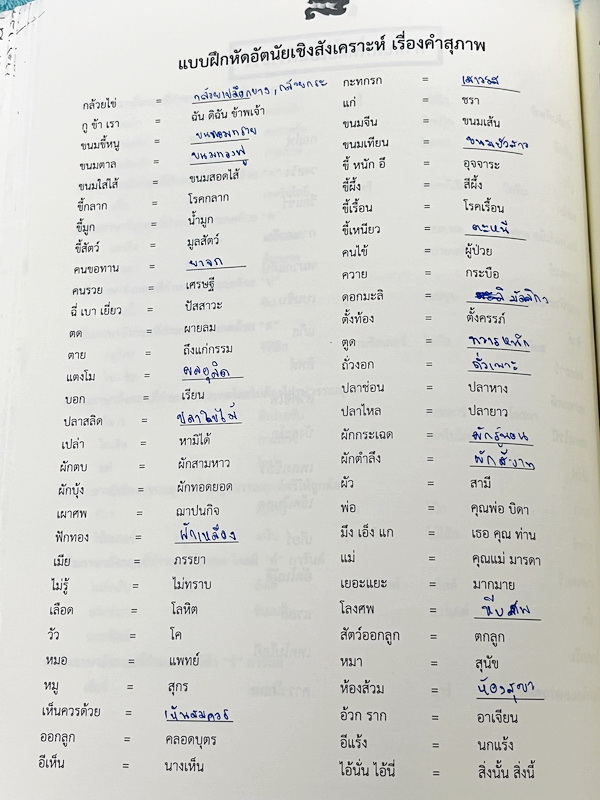 แบบฝึกหัดอัตนัยเชิงสังเคราะห์ เรื่องคำสุภาพ
กล้วยไข่ = กล้วยเปลือกบาง, กล้วยกระ
กู ข้า เรา = ฉัน ดิฉัน ข้าพเจ้า
ขนมขี้หนู = ขนมทราย
ขนมตาล = ขนมทองฟู
ขนมใส่ไส้ = ขนมสอดไส้
ขี้กลาก = โรคกลาก
ขี้มูก = น้ำมูก
ขี้สัตว์ = มูลสัตว์
คนขอทาน = ยาจก
คนรวย = เศรษฐี
ฉี่ เบา เยี่ยว = ปัสสาวะ
ตด = ผายลม
ตาย = ถึงแก่กรรม
แตงโม = ผลอุลิด
บอก = เรียน
ปลาสลิด = ปลาใบไม้
เปล่า = หามิได้
ผักตบ = ผักสามหาว
ผักบุ้ง = ผักทอดยอด
เผาศพ = ฌาปนกิจ
ฟักทอง = ฟักเหลือง
เมีย = ภรรยา
ไม่รู้ = ไม่ทราบ
เลือด = โลหิต
วัว = โค
หมอ = แพทย์
หมู = สุกร
เห็นควรด้วย = เห็นสมควร
ออกลูก = คลอดบุตร
อีเห็น = นางเห็น
กะทกรก = เสาวรส
แก่ = ชรา
ขนมจีน = ขนมเส้น
ขนมเทียน = ขนมบัวสาว
ขี้ หนัก อึ = อุจจาระ
ขี้ผึ้ง = สีผึ้ง
ขี้เรื้อน = โรคเรื้อน
ขี้เหนียว = ตะหนี่
คนไข้ = ผู้ป่วย
ควาย = กระบือ
ดอกมะลิ = มัลลิกา
ตั้งท้อง = ตั้งครรภ์
ตูด = ทวารหนัก
ถั่วงอก = ถั่วเพาะ
ปลาช่อน = ปลาหาง
ปลาไหล = ปลายาว
ผักกระเฉด = ผักรู้นอน
ผักตำลึง = ผักสี่บาท
ผัว = สามี
พ่อ = คุณพ่อ บิดา
มึง เอ็ง แก = เธอ คุณ ท่าน
แม่ = คุณแม่ มารดา
เยอะแยะ = มากมาย
โลงศพ = หีบศพ
สัตว์ออกลูก = ตกลูก
หมา = สุนัข
ห้องส้วม = ห้องสุขา
อ้วก ราก = อาเจียน
อีแร้ง = นกแร้ง
ไอ้นั่น ไอ้นี่ = สิ่งนั้น สิ่งนี้